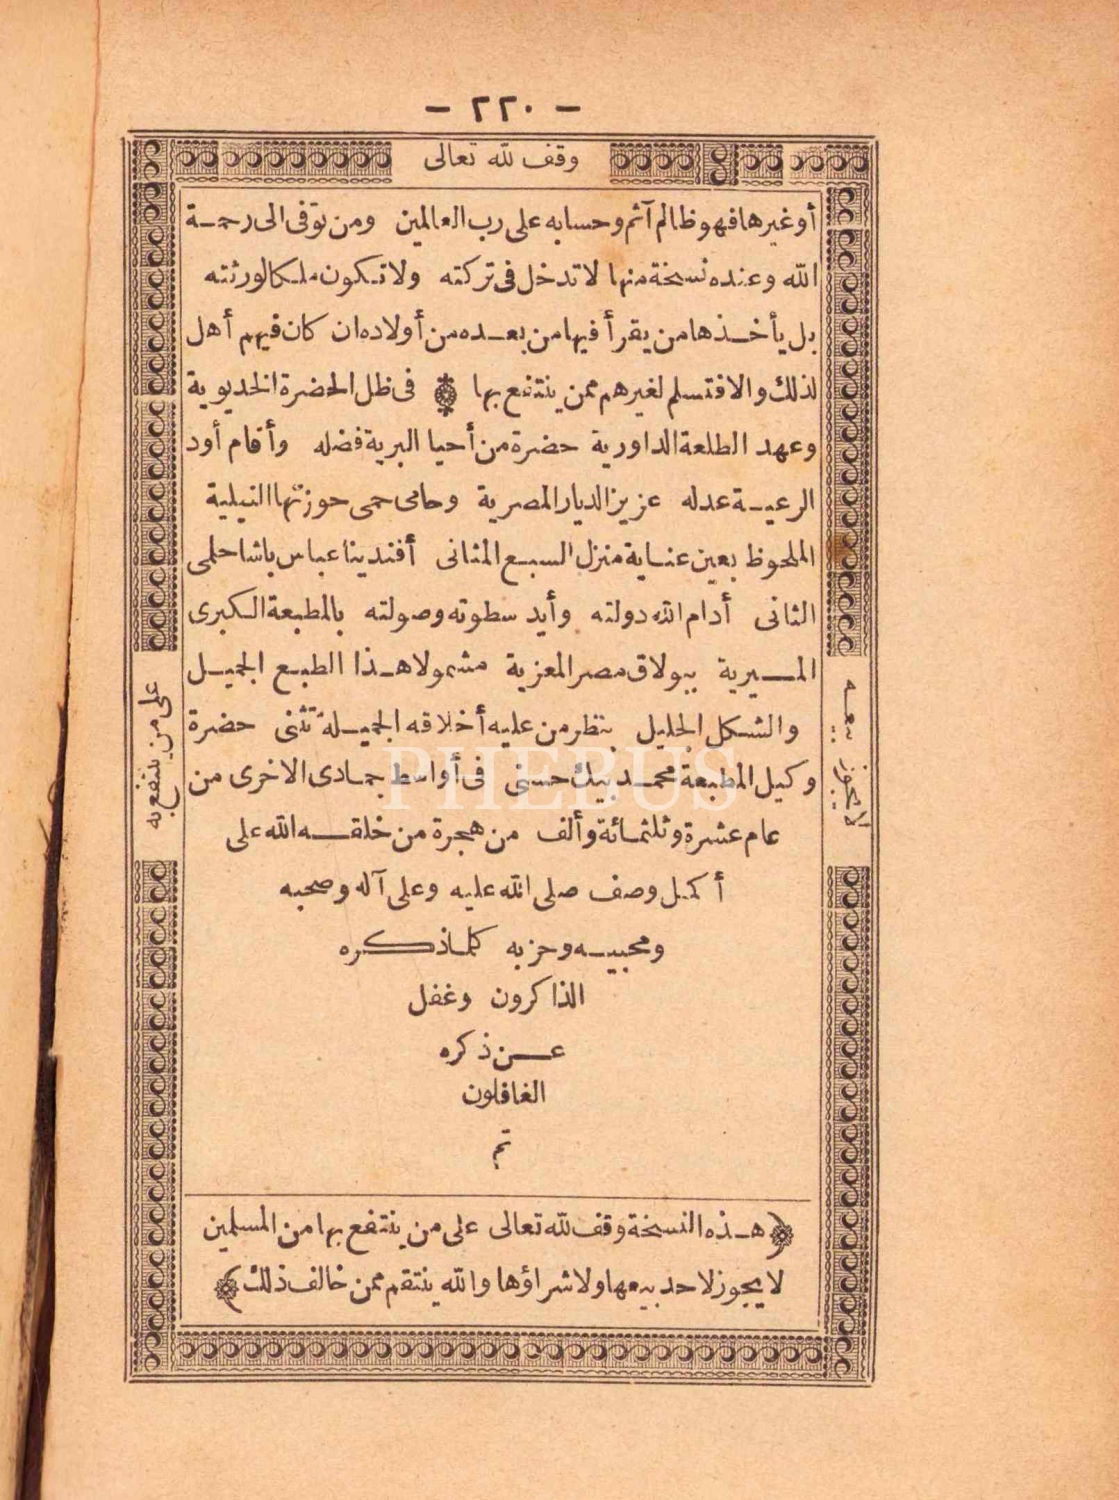 — ٢٢٠ —
وقف لله تعالى
أو غيرها فهو ظالم آثم وحسابه على رب العالمين ومن توفى الى رحمة
الله وعنده نسخة منها لا تدخل فى تركته ولا تكون ملكا لورثته
بل يأخذها من يقرأ فيها من بعده من أولاده ان كان فيهم أهل
لذلك والا فتسلم لغيرهم ممن ينتفع بها ۞ فى ظل الحضرة الخديوية
وعهد الطلعة الداورية حضرة من أحيا البرية فضله وأقام أود
الرعية عدله عزيز الديار المصرية وحامى حمى حوزتها النيلية
الملحوظ بعين عناية منزل السبع المثانى أفندينا عباس باشا حلمى
الثانى أدام الله دولته وأيد سطوته وصولته بالمطبعة الكبرى
الميرية ببولاق مصر المعزية مشمولا هذا الطبع الجميل
والشكل الجليل بنظر من عليه أخلاقه الجميلة تثنى حضرة
وكيل المطبعة محمد بيك حسنى فى أواسط جمادى الاخرى من
عام عشرة وثلثمائة وألف من هجرة من خلقه الله على
أكمل وصف صلى الله عليه وعلى آله وصحبه
ومحبيه وحزبه كلما ذكره
الذاكرون وغفل
عن ذكره
الغافلون
تم
لايجوز بيعه
على من ينتفع به
﴿هذه النسخة وقف لله تعالى على من ينتفع بها من المسلمين
لا يجوز لاحد بيعها ولا شراؤها والله ينتقم ممن خالف ذلك﴾
PHEBUS